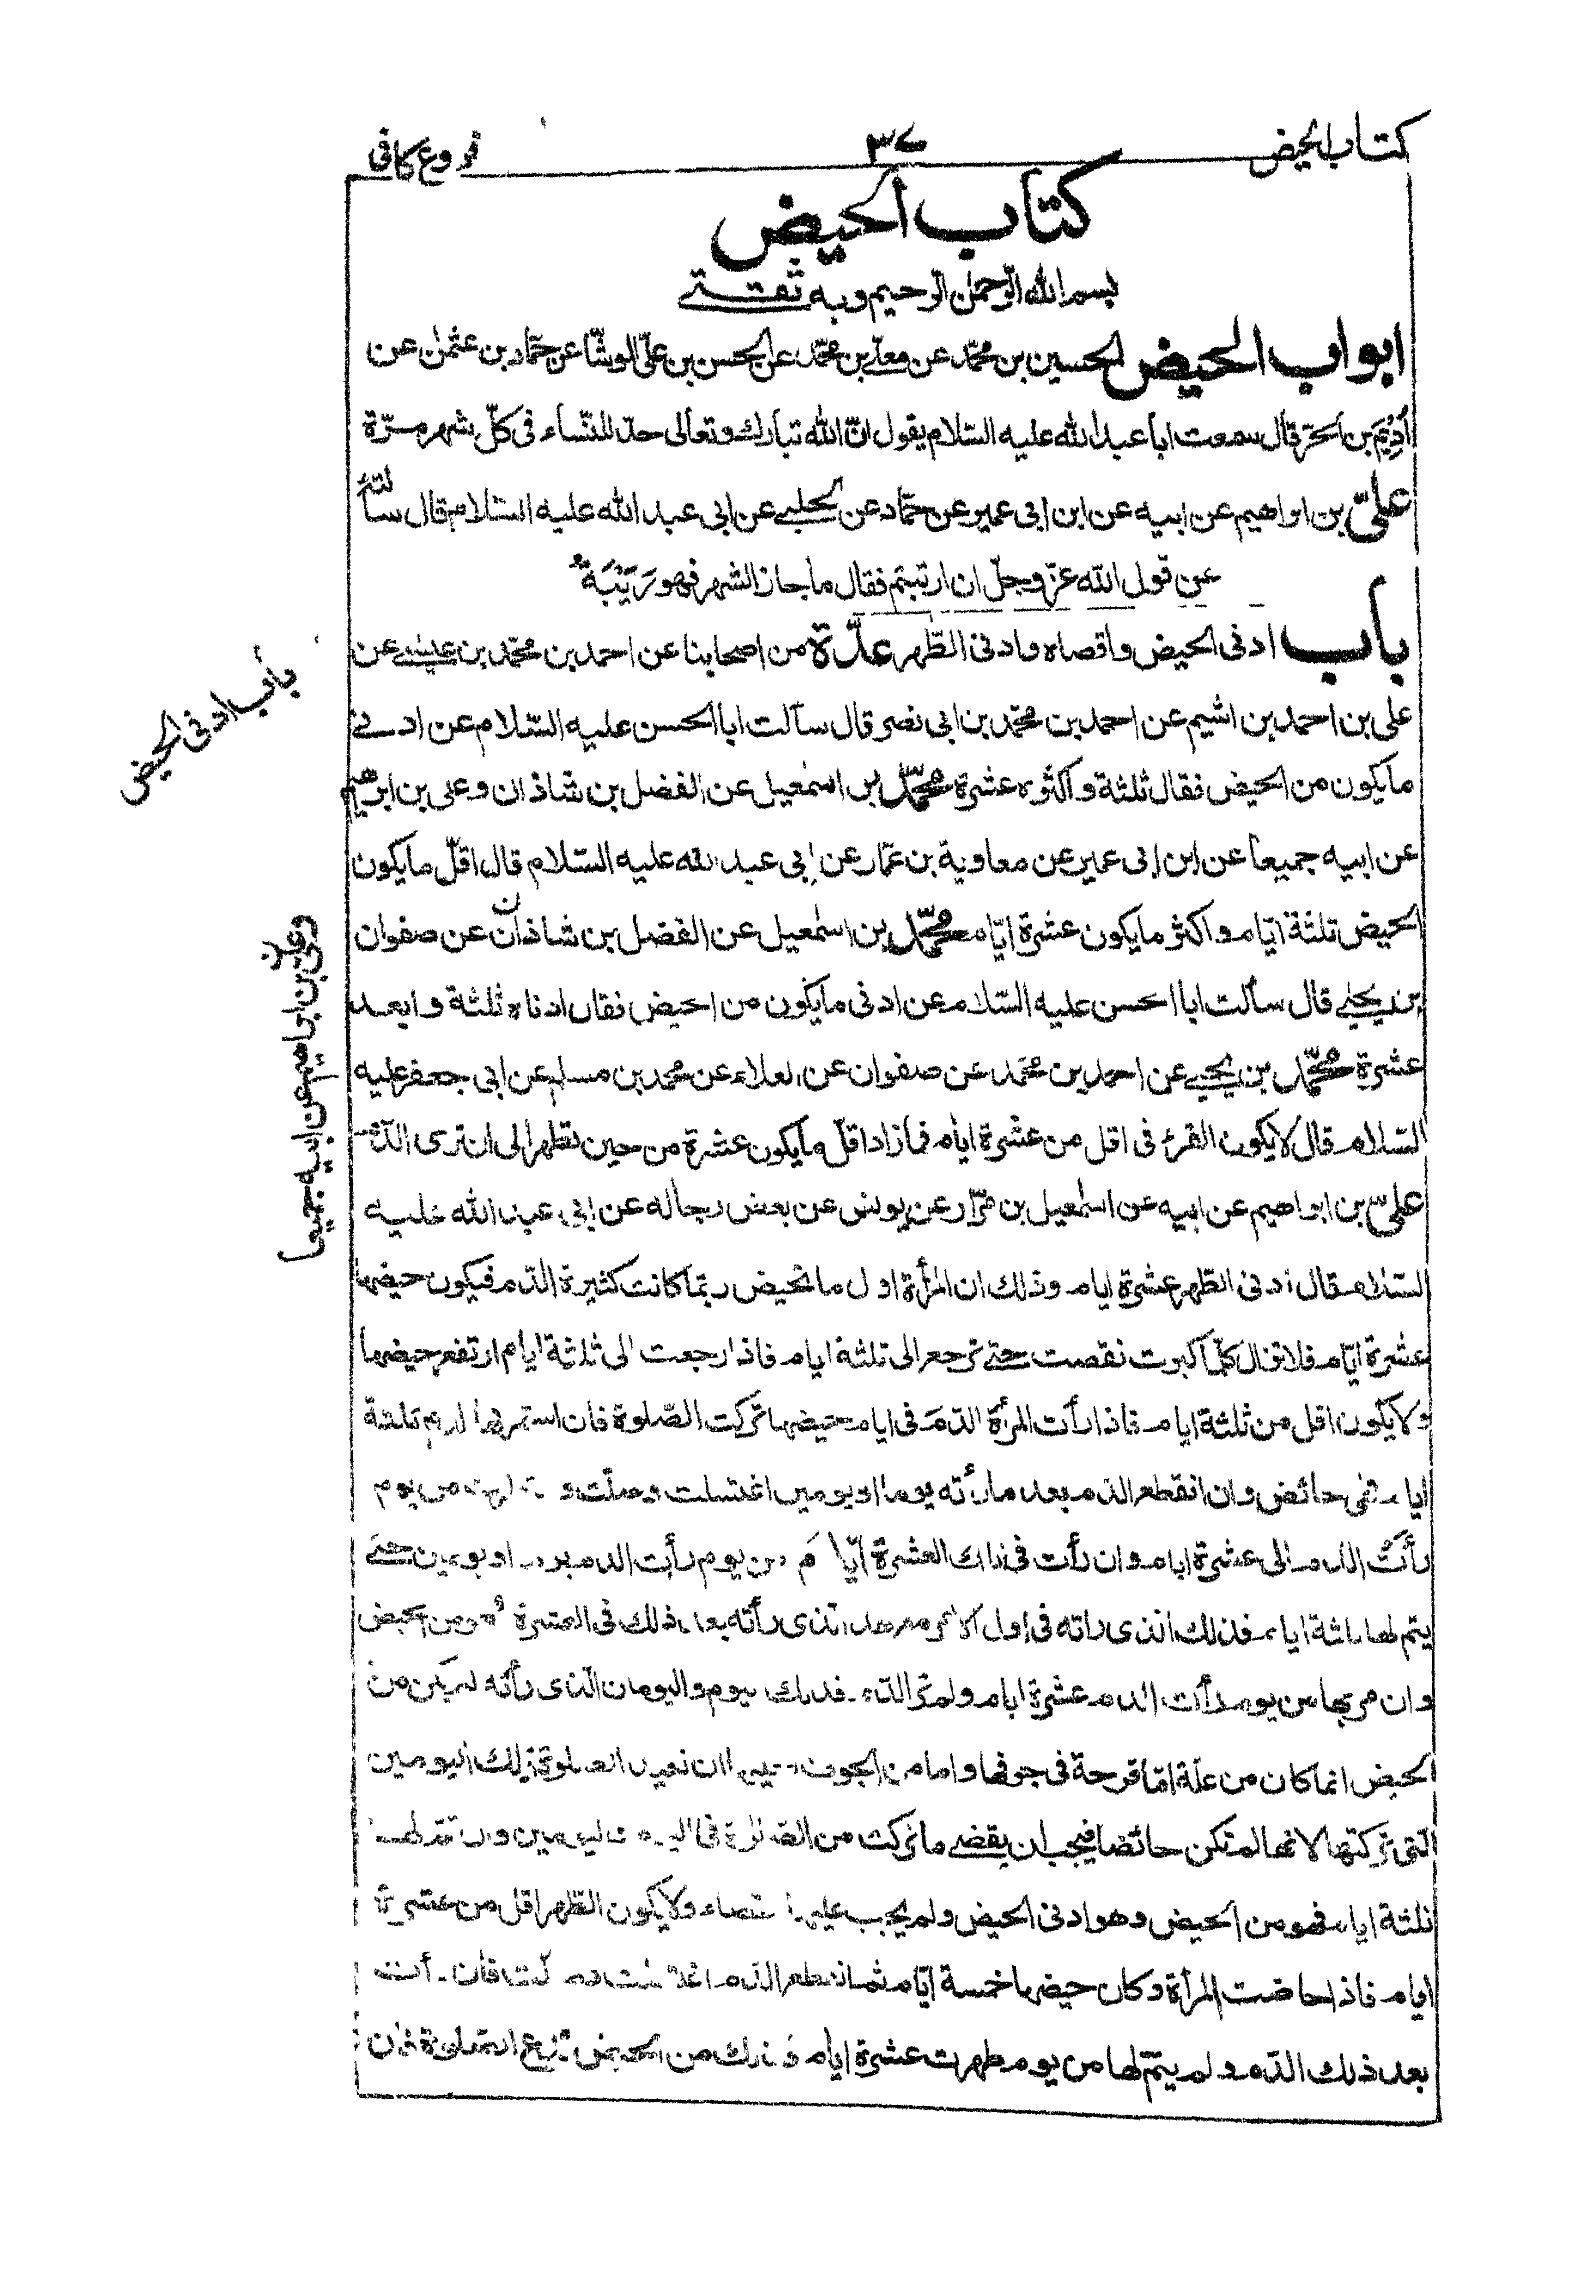 كتاب الحيض
٣٧
فروع كافى
كتاب الحيض
بسم الله الرحمن الرحيم وبه ثقتي
ابواب الحيض الحسين بن محمّد عن معلّى بن محمّد عن الحسن بن علىّ الوشّا عن حمّاد بن عثمٰن عن
أُدَيْم بن الحرّ قال سمعت ابا عبد الله عليه السّلام يقول انّ الله تبارك وتعالى حدّ للنّساء فى كلّ شهر مرّة
علىّ بن ابراهيم عن ابيه عن ابن ابى عمير عن حمّاد عن الحلبي عن ابى عبد الله عليه السّلام قال سألته
عن قول الله عزّ وجلّ ان ارتبتم فقال ما جاز الشهر فهو رَيْبَة
باب ادنى الحيض واقصاه وادنى الطّهر عدّة من اصحابنا عن احمد بن محمّد بن عيسى عن
على بن احمد بن اشيم عن احمد بن محمّد بن ابى نصر قال سألت ابا الحسن عليه السّلام عن ادنى
ما يكون من الحيض فقال ثلثة واكثره عشرة محمّد بن اسمٰعيل عن الفضل بن شاذان وعلى بن ابرهيم
عن ابيه جميعا عن ابن ابى عمير عن معاوية بن عمّار عن ابى عبد الله عليه السّلام قال اقلّ ما يكون
الحيض ثلثة ايّام واكثر ما يكون عشرة ايّام محمّد بن اسمٰعيل عن الفضل بن شاذان عن صفوان
بن يحيى قال سألت ابا الحسن عليه السّلام عن ادنى ما يكون من الحيض فقال ادناه ثلثة وابعد
عشرة محمّد بن يحيى عن احمد بن محمّد عن صفوان عن العلاء عن محمد بن مسلم عن ابى جعفر عليه
السّلام قال لا يكون القرء فى اقل من عشرة ايام فما زاد اقلّ ما يكون عشرة من حين تطهر الى ان ترى الدّم
علىّ بن ابراهيم عن ابيه عن اسمٰعيل بن مرّار عن يونس عن بعض رجاله عن ابى عبد الله عليه
السّلام قال ادنى الطّهر عشرة ايام وذلك ان المرأة اول ما تحيض ربّما كانت كثيرة الدّم فيكون حيضها
عشرة ايّام فلا تزال كلّما كبرت نقصت حتى ترجع الى ثلثة ايام فاذا رجعت الى ثلثة ايام ارتفع حيضها
ولا يكون اقل من ثلثة ايام فاذا رأت المرأة الدّمَ فى ايام حيضها تركت الصّلوة فان استمر بها الدم ثلثة
ايام فهى حائض وان انقطع الدّم بعد ما رأته يوما او يومين اغتسلت وصلّت و من يوم
رأتْ الدّم الى عشرة ايام وان رأت فى تلك العشرة ايّام من يوم رأت الدم يوما او يومين حتى
يتم لها ثلثة ايام فذلك الذى راته فى اول الامر مع هذا الذى رأته بعد ذلك فى العشرة هو من الحيض
وان مرّ بها من يوم رأت الدم عشرة ايام ولم تر الدّم فذلك اليوم واليومان الّذى رأته لم يكن من
الحيض انما كان من علّة امّا قرحة فى جوفها واما من الجوف فعليها ان تعيد الصلوة تلك اليومين
الّتى تركتها لانها لم تكن حائضا فيجب ان يقضى ما تركت من الصّلوة فى اليوم واليومين وان تمّ لها
ثلثة ايام فهو من الحيض وهو ادنى الحيض ولم يجب عليها القضاء ولا يكون الطّهر اقل من عشرة
ايام فاذا حاضت المرأة وكان حيضها خمسة ايّام ثم انقطع الدّم اغتسلت وصلّت فان رأت
بعد ذلك الدّم ولم يتمّ لها من يوم طهرت عشرة ايام فذلك من الحيض تدع الصّلوة فان
باب ادنى الحيض
وعلى بن ابراهيم عن ابيه جميعا